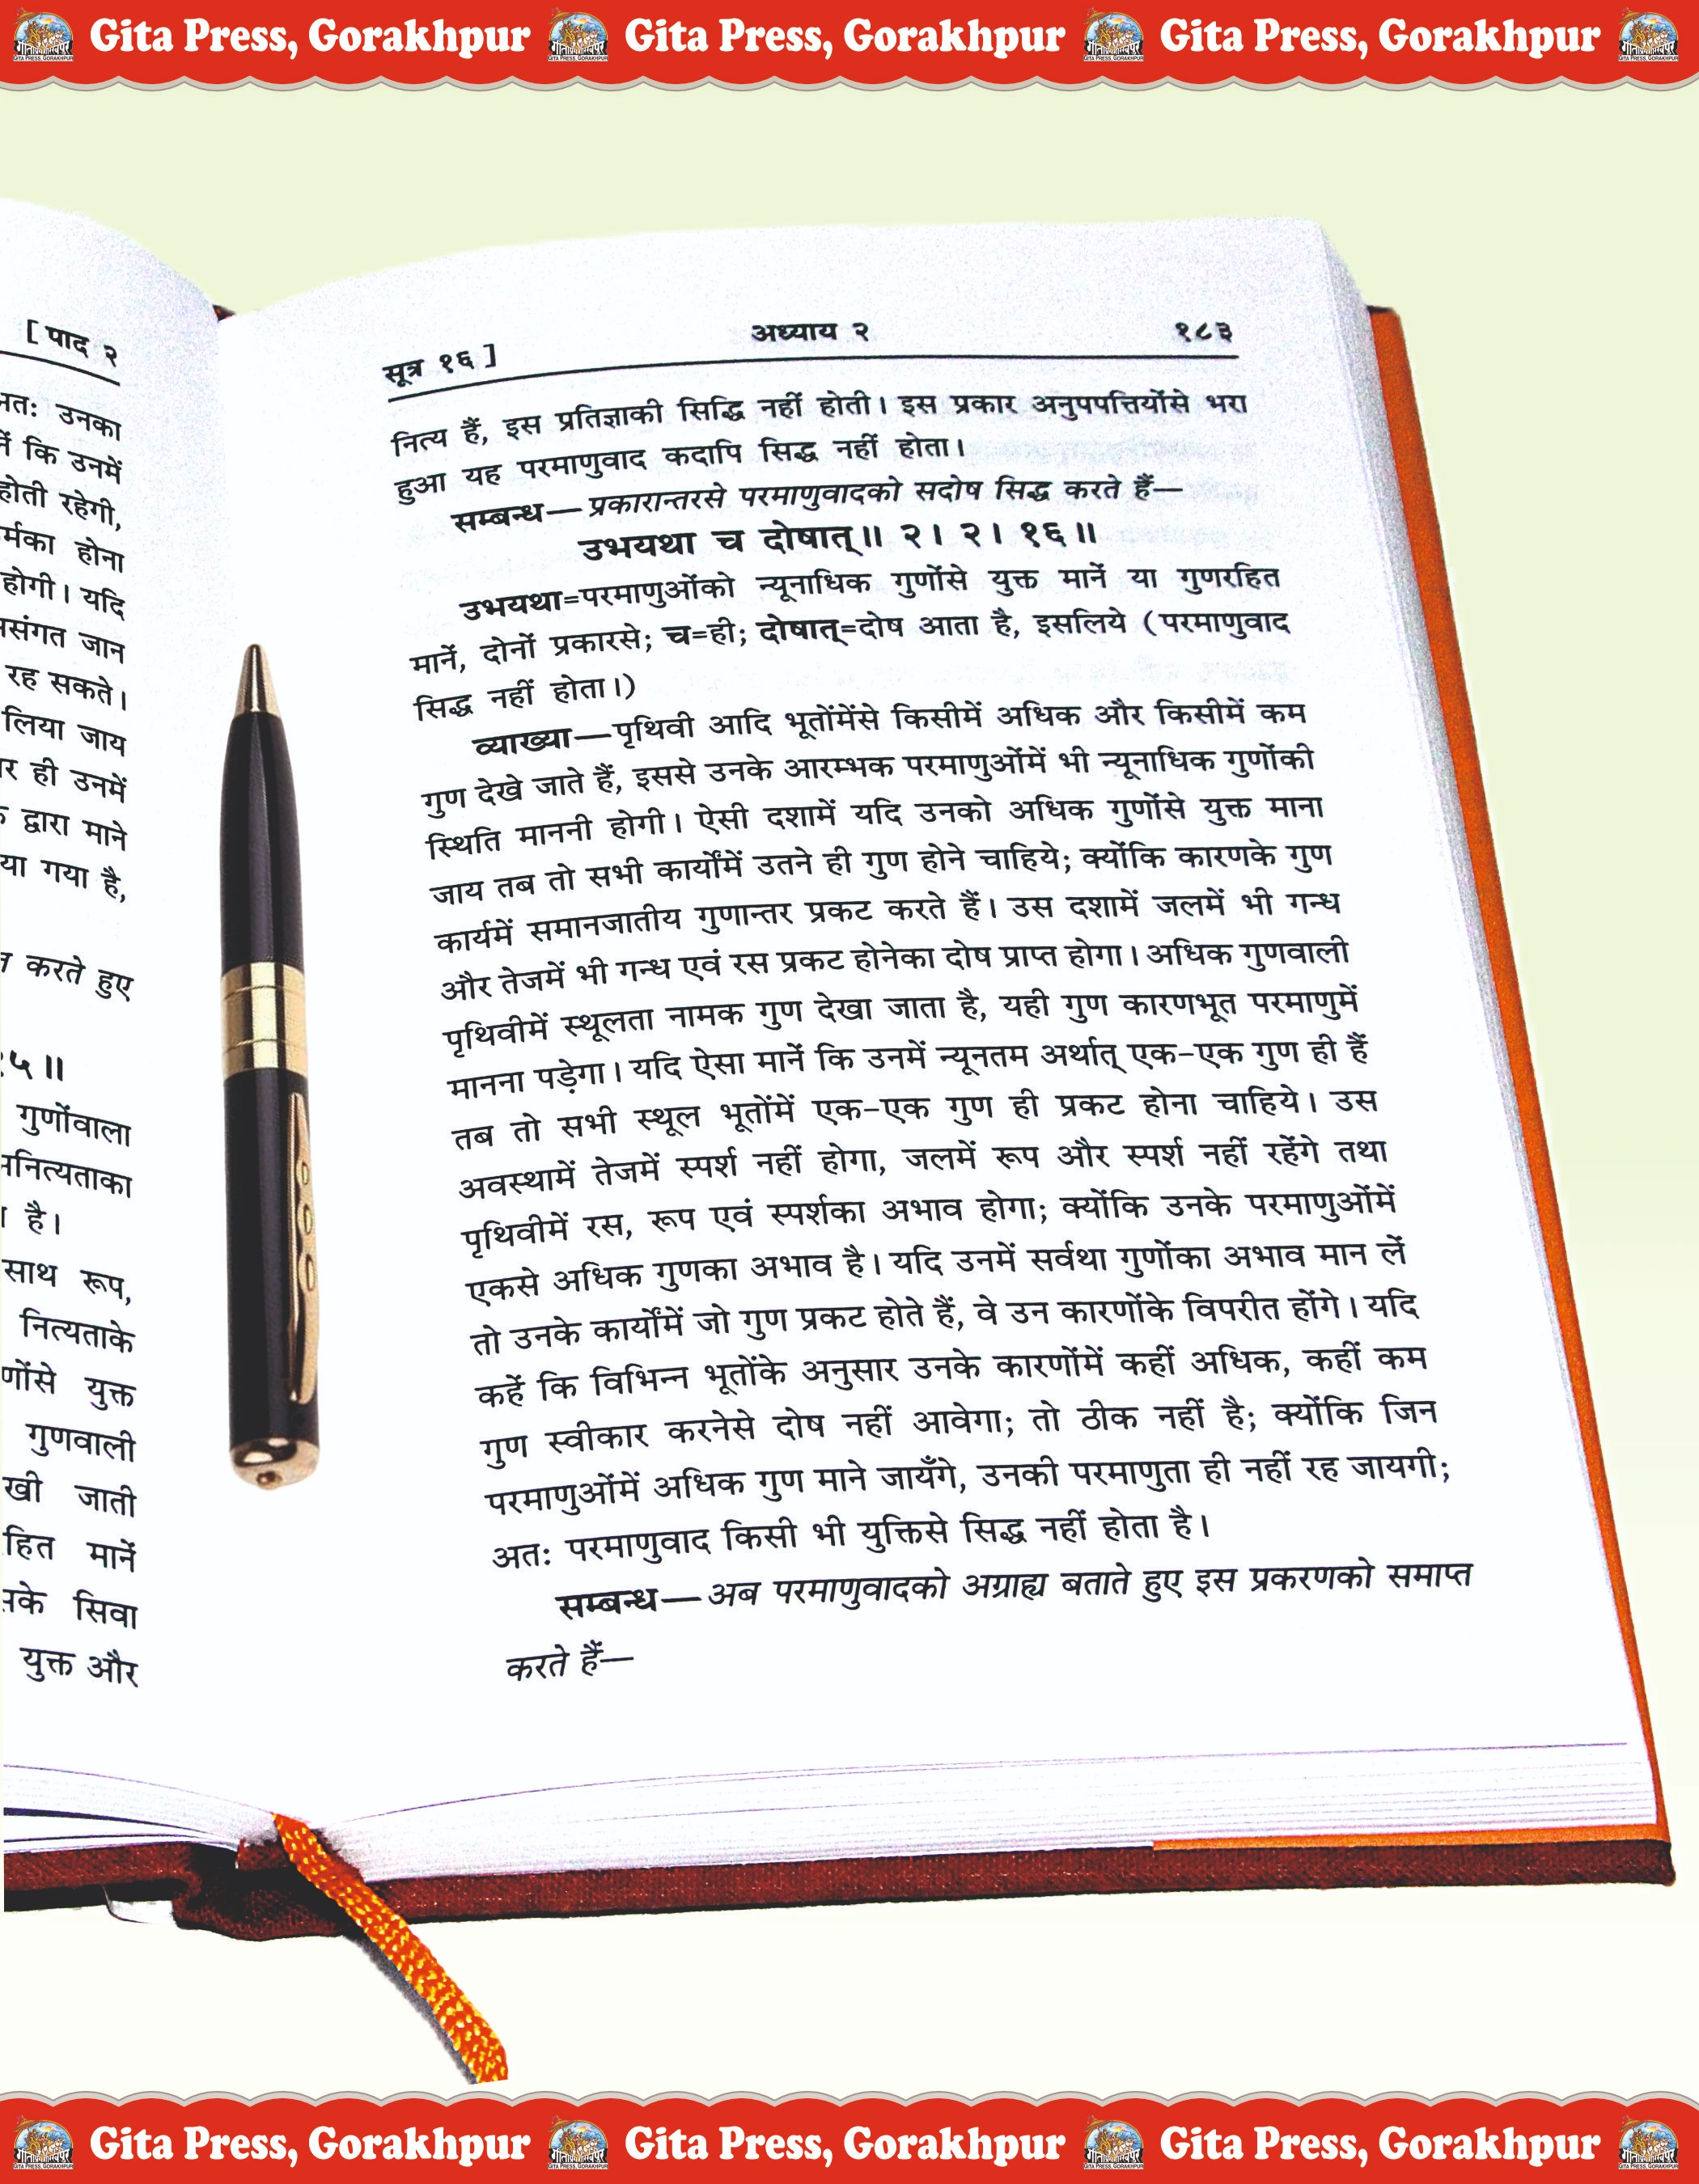 Gita Press, Gorakhpur Gita Press, Gorakhpur Gita Press, Gorakhpur
[ पाद २
उनका
कि उनमें
होती रहेगी,
होना
होगी। यदि
जान
रह सकते।
लिया जाय
ही उनमें
द्वारा माने
गया है,
करते हुए
५॥
गुणोंवाला
है।
साथ रूप,
नित्यताके
युक्त
गुणवाली
जाती
मानें
सिवा
युक्त और
सूत्र १६ ] अध्याय २ १८३
नित्य हैं, इस प्रतिज्ञाकी सिद्धि नहीं होती। इस प्रकार अनुपपत्तियोंसे भरा
हुआ यह परमाणुवाद कदापि सिद्ध नहीं होता।
सम्बन्ध—प्रकारान्तरसे परमाणुवादको सदोष सिद्ध करते हैं—
उभयथा च दोषात्॥ २। २। १६॥
उभयथा=परमाणुओंको न्यूनाधिक गुणोंसे युक्त मानें या गुणरहित
मानें, दोनों प्रकारसे; च=ही; दोषात्=दोष आता है, इसलिये (परमाणुवाद
सिद्ध नहीं होता।)
व्याख्या—पृथिवी आदि भूतोंमेंसे किसीमें अधिक और किसीमें कम
गुण देखे जाते हैं, इससे उनके आरम्भक परमाणुओंमें भी न्यूनाधिक गुणोंकी
स्थिति माननी होगी। ऐसी दशामें यदि उनको अधिक गुणोंसे युक्त माना
जाय तब तो सभी कार्योंमें उतने ही गुण होने चाहिये; क्योंकि कारणके गुण
कार्यमें समानजातीय गुणान्तर प्रकट करते हैं। उस दशामें जलमें भी गन्ध
और तेजमें भी गन्ध एवं रस प्रकट होनेका दोष प्राप्त होगा। अधिक गुणवाली
पृथिवीमें स्थूलता नामक गुण देखा जाता है, यही गुण कारणभूत परमाणुमें
मानना पड़ेगा। यदि ऐसा मानें कि उनमें न्यूनतम अर्थात् एक-एक गुण ही हैं
तब तो सभी स्थूल भूतोंमें एक-एक गुण ही प्रकट होना चाहिये। उस
अवस्थामें तेजमें स्पर्श नहीं होगा, जलमें रूप और स्पर्श नहीं रहेंगे तथा
पृथिवीमें रस, रूप एवं स्पर्शका अभाव होगा; क्योंकि उनके परमाणुओंमें
एकसे अधिक गुणका अभाव है। यदि उनमें सर्वथा गुणोंका अभाव मान लें
तो उनके कार्योंमें जो गुण प्रकट होते हैं, वे उन कारणोंके विपरीत होंगे। यदि
कहें कि विभिन्न भूतोंके अनुसार उनके कारणोंमें कहीं अधिक, कहीं कम
गुण स्वीकार करनेसे दोष नहीं आवेगा; तो ठीक नहीं है; क्योंकि जिन
परमाणुओंमें अधिक गुण माने जायँगे, उनकी परमाणुता ही नहीं रह जायगी;
अतः परमाणुवाद किसी भी युक्तिसे सिद्ध नहीं होता है।
सम्बन्ध—अब परमाणुवादको अग्राह्य बताते हुए इस प्रकरणको समाप्त
करते हैं—
Gita Press, Gorakhpur Gita Press, Gorakhpur Gita Press, Gorakhpur